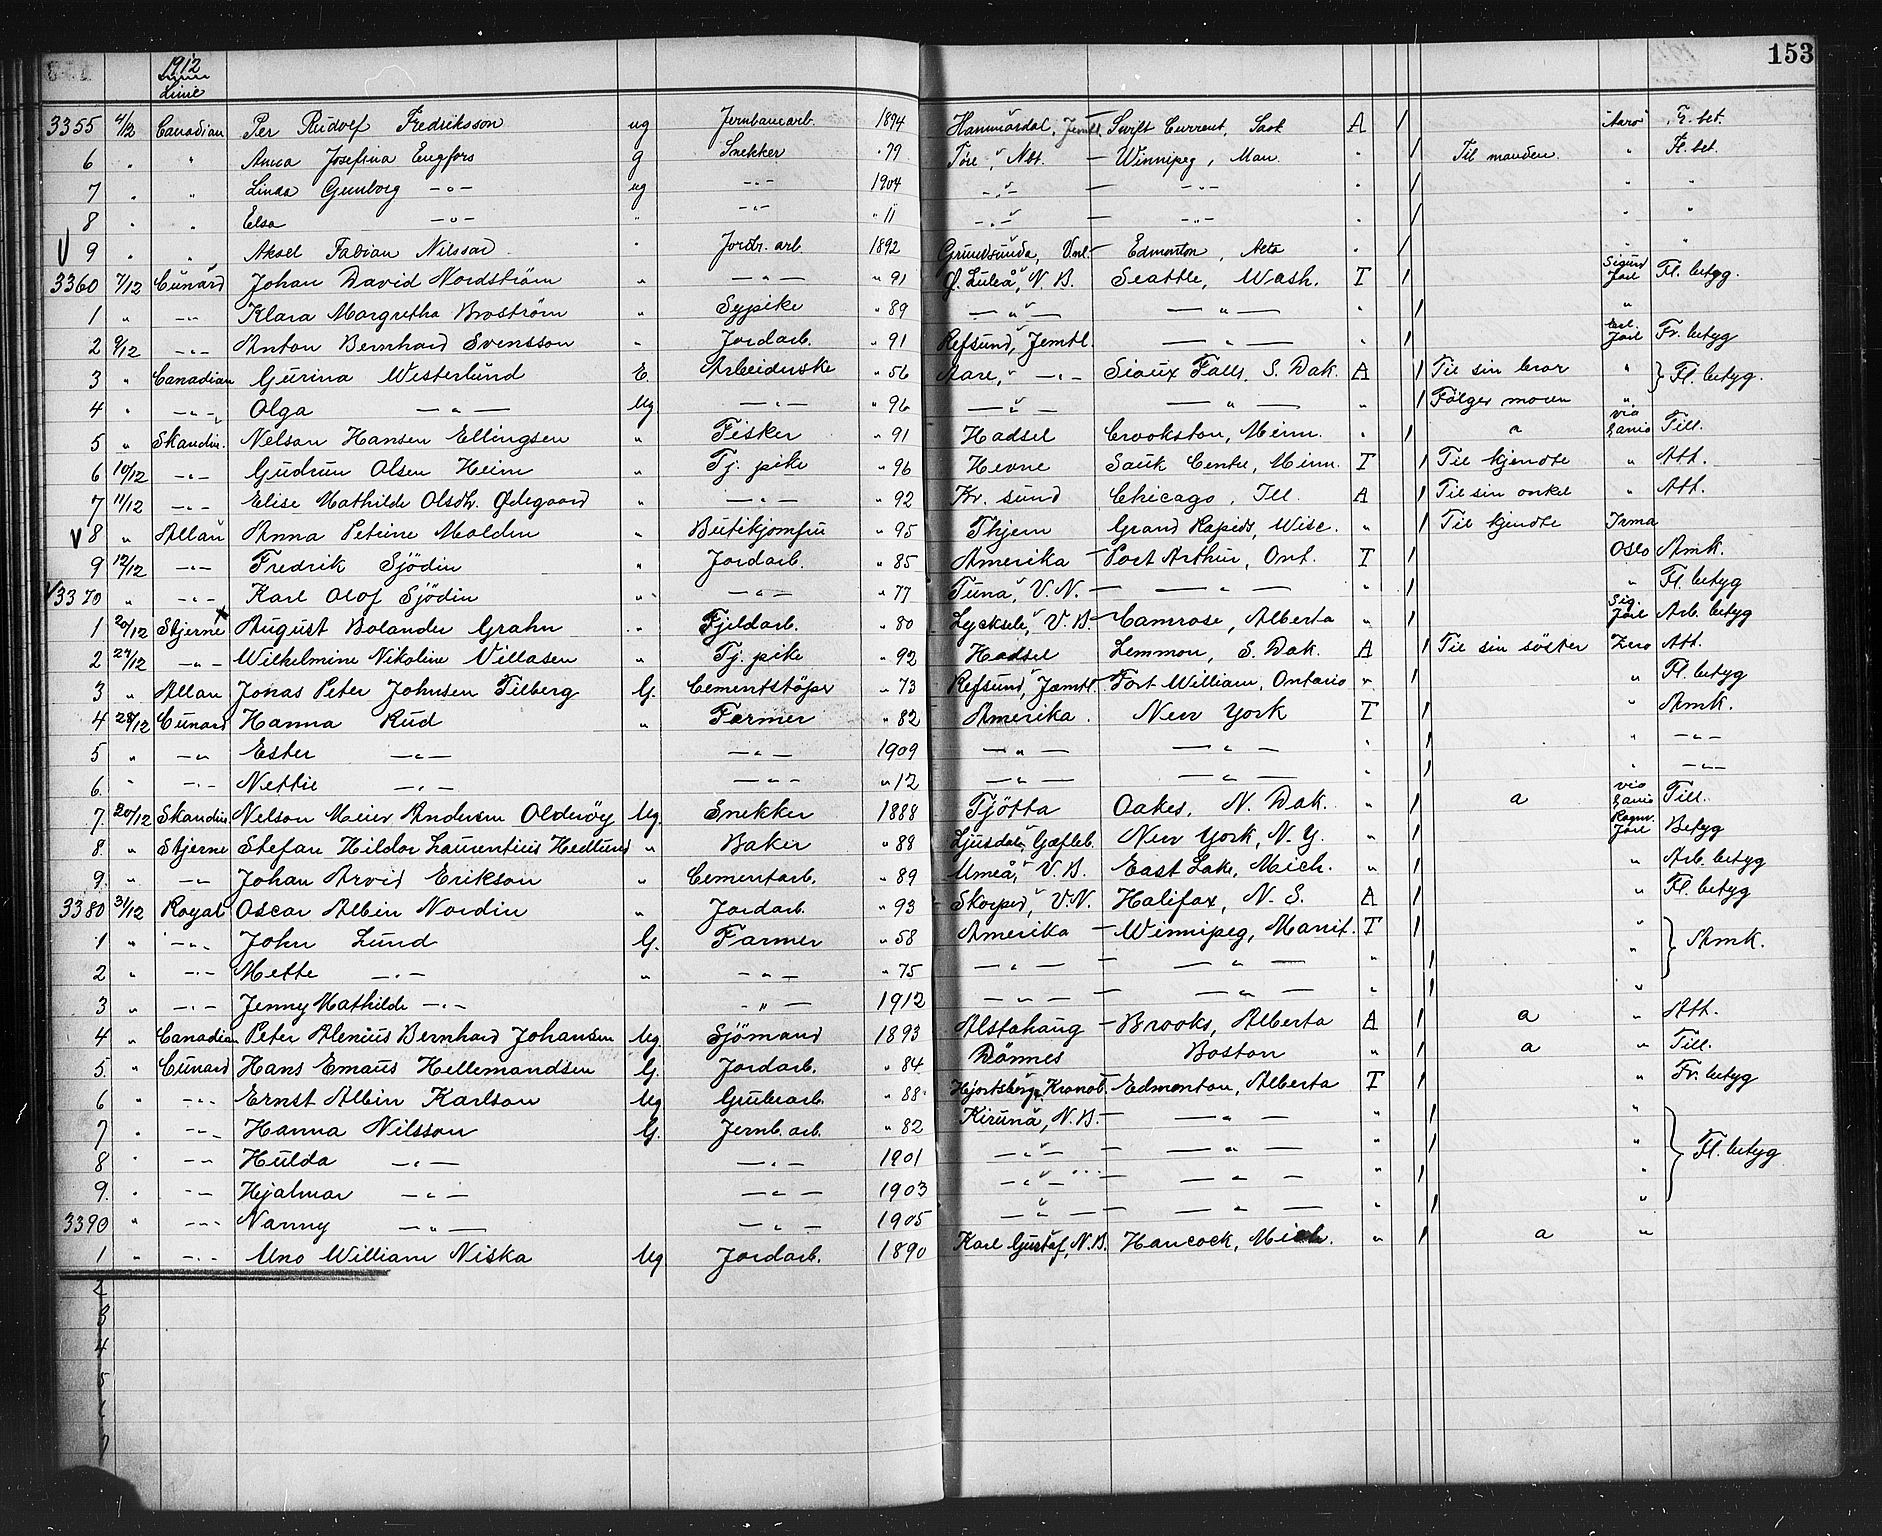 1912 153
Linie
3355 4/12 Canadian Per Rudolf Fredriksson ug Jernbanearb. 1894 Hammerdal, Jemtl. — Swift Current, Sask A / "Aaro" Fr. bet.
6 " " Anna Josefina Engfors g Snekker " 79 Töre, Nbt. — Winnipeg, Man. " / Til manden. " Fl. bet.
7 " " Linda Gunborg —"— ug —"— 1904 —"— — —"— " / " "
8 " " Elsa —"— " —"— " 11 —"— — —"— " / " "
V 9 " " Aksel Fabian Nilssad " Jordb. arb 1892 Grundsunda, Vnl — Edmonton, Alta " / " "
3360 7/12 Cunard Johan David Nordström " —"— " 91 Ø. Luleå, N. B. Seattle, Wash. T / Sigurd Jarl Fl. betyg.
1 " —"— Klara Margretha Broström " Sypike " 89 —"— —"— " / "
2 9/12 —"— Anton Bernhard Svensson " Jordarb. " 91 Refsund, Jemtl. —"— " / Erl. Jarl Fr. betyg
3 " Canadian Gurina Westerlund E. Arbeiderske " 56 Aare, —"— Sioux Falls, S. Dak. A / Til sin bror " } Fl. betyg.
4 " —"— Olga —"— Ug —"— " 96 —"— —"— " / Følger moren "
5 " Skandin. Nelson Hansen Ellingsen " Fisker " 91 Hadsel Crookston, Minn. " / a via Xania Till.
6 10/12 —"— Gudrun Olsen Heim " Tj. pike " 96 Hevne Sauk Centre, Minn. T / Til kjendte " Att.
7 11/12 —"— Elise Mathilde Olsdt. Ødegaard " —"— " 92 Kr. sund Chicago, Ill. A / Til sin onkel " Att.
V 8 " Allan Anna Petrine Malden " Butikjomfru " 95 Thjem Grand Rapids, Wisc. " / Til kjendte Irma
9 12/12 —"— Fredrik Sjödin " Jordarb. " 85 Amerika — Port Arthur, Ont. T / Oslo Amk.
V 3370 " —"— Karl Olof Sjödin " —"— " 77 Tuna, V. N. — —"— " / " Fl. betyg
1 20/12 Stjerne x August Bolander Grahn " Fjeldarb. " 80 Lycksele, V. B. — Camrose, Alberta " / Sig. Jarl Arb. betyg
2 27/12 —"— Wilhelmine Nikoline Villasen " Tj. pike " 92 Hadsel Lemmon, S. Dak. A / Til sin söster Zero Att.
3 " Allan Jonas Peter Johnsen Tilberg G. Cementstöper " 73 Refsund, Jæmtl. — Fort William, Ontario " / " Fl. betyg
4 28/12 Cunard Hanna Rud " Farmer " 82 Amerika. New York T / " Amk.
5 " —"— Ester —"— —"— 1909 —"— —"— " / " —"—
6. " —"— Nettie —"— —"— " 12 —"— —"— " / " —"—
7 20/12 Skandin Nelson Meier Andersen Olderöy Ug. Snekker 1888 Tjötta Oakes, N. Dak. " / a via Xania Till.
8. " Stjerne Stefan Hildor Laurentius Hedlund " Baker " 88 Ljusdal, Gæfleb. New York, N. Y. " / Ragnv. Jarl Betyg
9. " —"— Johan Arvid Erikson " Cementarb. " 89 Umeå, V. B. East Lake, Mich. " / " Arb. betyg
3380 31/12 Royal Oscar Albin Nordin " Jordarb. " 93 Skorped, V. N. Halifax, N. S. A / " Fl. betyg
1 " —"— John Lund G. Farmer " 58 Amerika — Winnipeg, Manit. T / " } Amk.
2 " —"— Mette —"— " —"— " 75 —"— — —"— " / "
3 " —"— Jenny Mathilde —"— —"— 1912 —"— —"— " / "
4 " Canadian Peter Alenius Bernhard Johansen Ug. Sjömand 1893 Alstahaug — Brooks, Alberta A / a " Att.
5 " Cunard Hans Emaus Hellemandsen G. Jordarb. " 84 Dönnes Boston " / a " Till.
6 " —"— Ernst Albin Karlson Ug Grubearb. " 88 Hjortsberga, Kronob. — Edmonton, Alberta T / " Fr. betyg
7 " —"— Hanna Nilsson G. Jernb. arb. " 82 Kiruna, N. B. — —"— " / " } Fl. betyg
8 " —"— Hulda —"— —"— 1901 —"— — —"— " / "
9. " —"— Hjalmar —"— —"— 1903 —"— —"— " / "
3390 " —"— Nanny —"— —"— 1905 —"— —"— " / "
1 " —"— Uno William Niska Ug Jordarb. 1890 Karl Gustaf, N. B. Hancock, Mich. " / a "
2
3
4
5